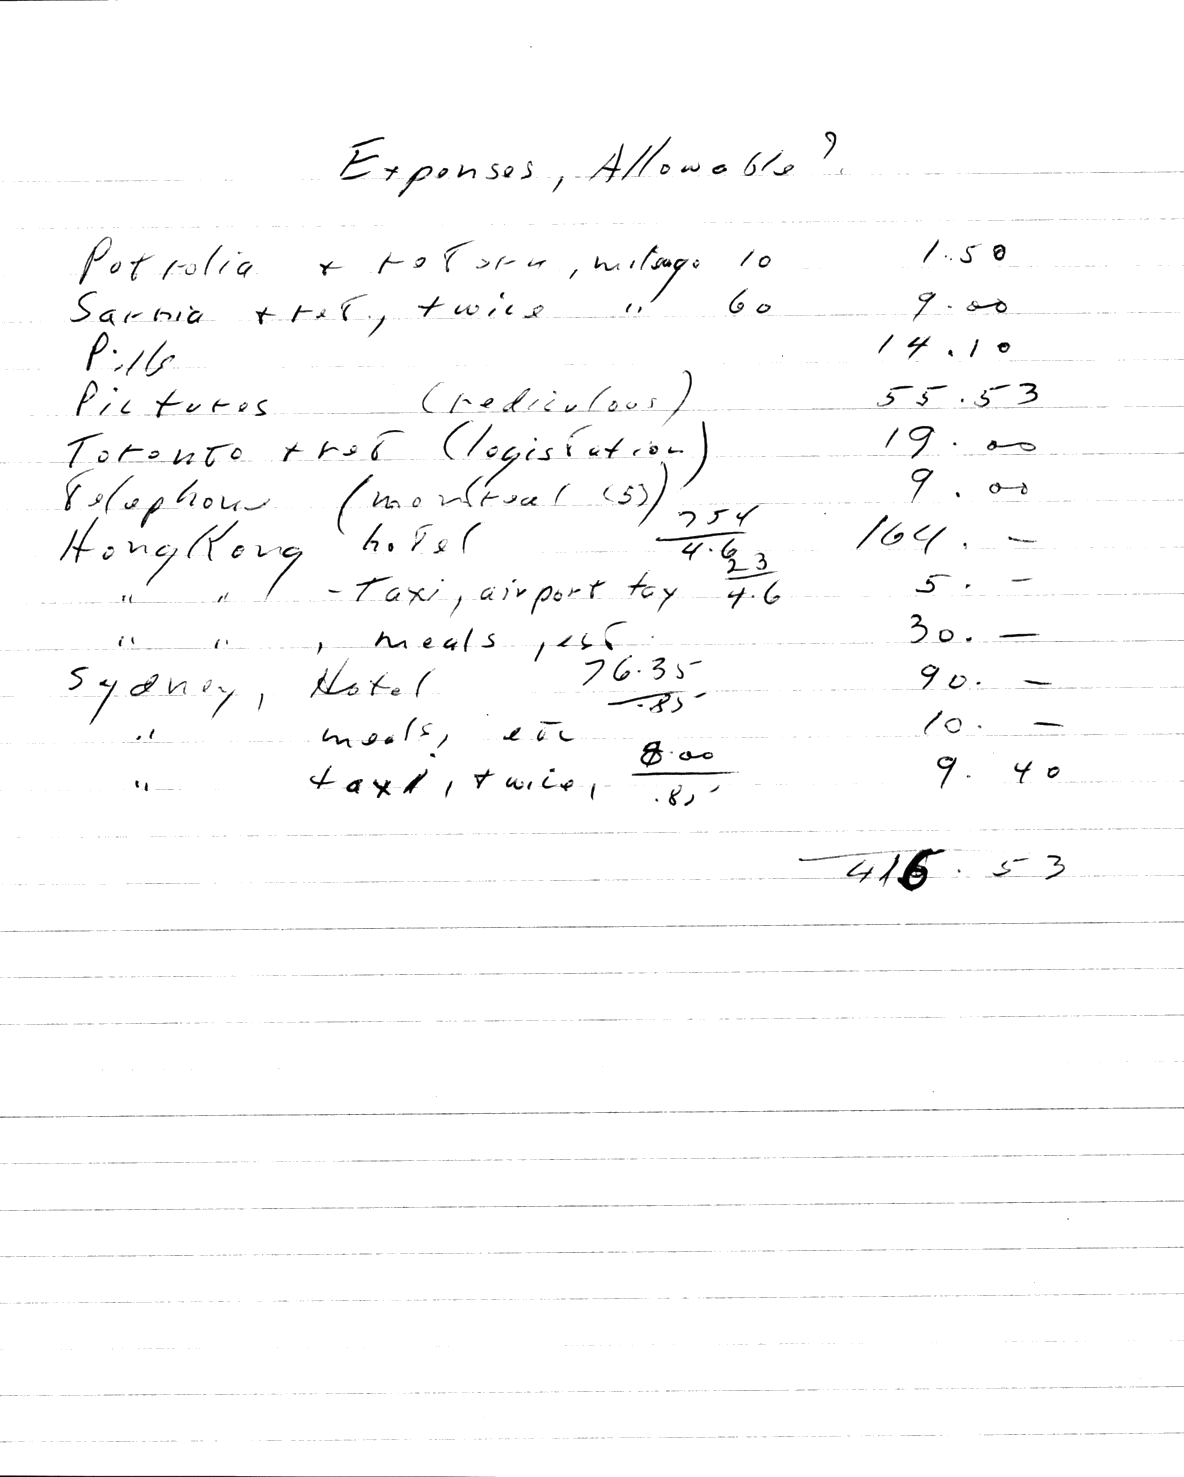 Expenses, Allowable?
Petrolia + return, milage 10 1.50
Sarnia + ret, twice " 60 9.00
Pills 14.10
Pictures (rediculous) 55.53
Toronto + ret (legistation) 19.00
Telephone (montreal (5) 9.00
HongKong hotel 754/4.6 164. —
" " - Taxi, airport tax 23/4.6 5. —
" " , meals, est. 30. —
Sydney, Hotel 76.35/.85 90. —
" meals, etc 10. —
" taxi, twice, 8.00/.85 9.40
416.53